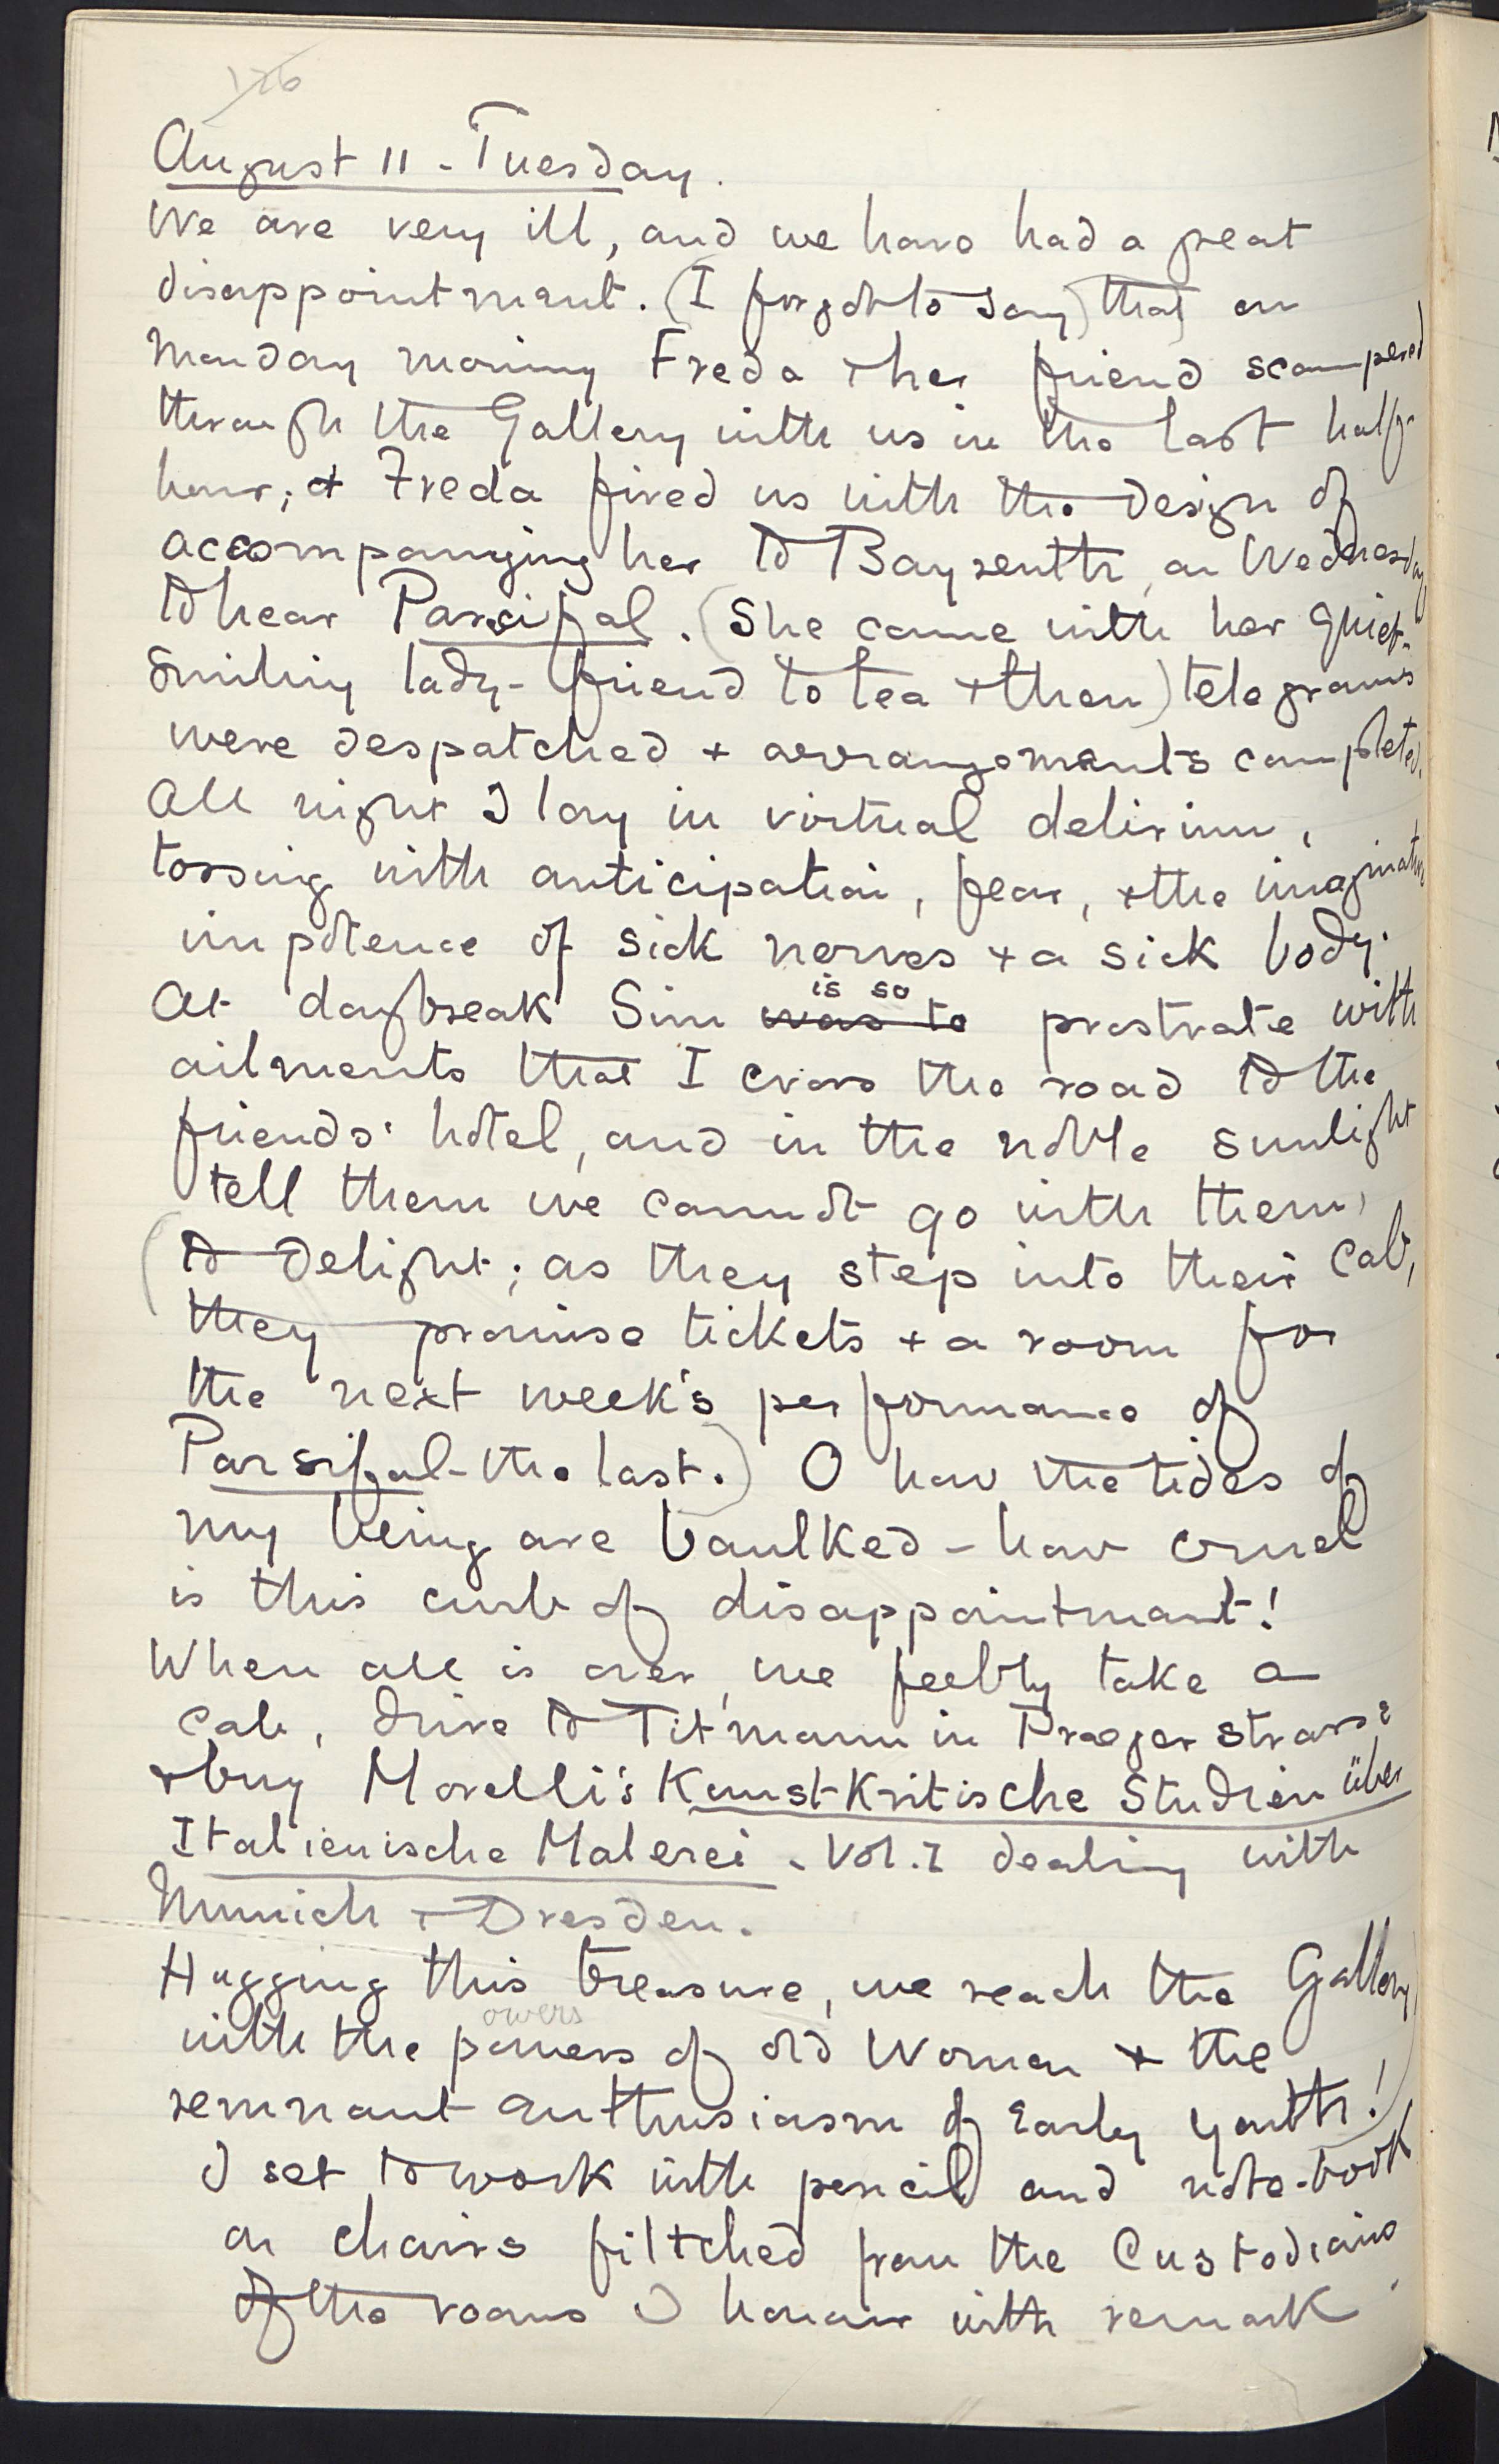 126
August 11 - Tuesday.
We are very ill, and we have had a great
disappointment. (I forgot to say) that on
Monday morning Freda + her friend scampered
through the Gallery with us in the last half-
hour; + Freda fired us with the design of
accompanying her to Bayreuth, on Wednesday
to hear Parsifal. (She came with her quiet-
smiling lady-friend to tea + then) telegrams
were despatched + arrangements completed.
All night I lay in virtual delirium,
tossing with anticipation, fear, + the imaginative
impotence of sick nerves + a sick body.
At daybreak Sim was to is so prostrate with
ailments that I cross the road to the
friends' hotel, and in the noble sunlight
tell them we cannot go with them,
(to delight; as they step into their cab,
they promise tickets + a room for
the next week's performance of
Parsifal - the last.) O how the tides of
my being are baulked - how cruel
is this curb of disappointment!
When all is over, we feebly take a
cab, drive to Titmann in Prager strasse
+ buy Morelli's Kunst-Kritische Studien über
Italienische Malerei - Vol. I dealing with
Munich + Dresden.
Hugging this treasure, we reach the Gallery,
owers
with the powers of old Women + the
remnant enthusiasm of early youth!)
I set to work with pencil and note-book
on chairs filtched from the Custodians
of the rooms I honour with remark